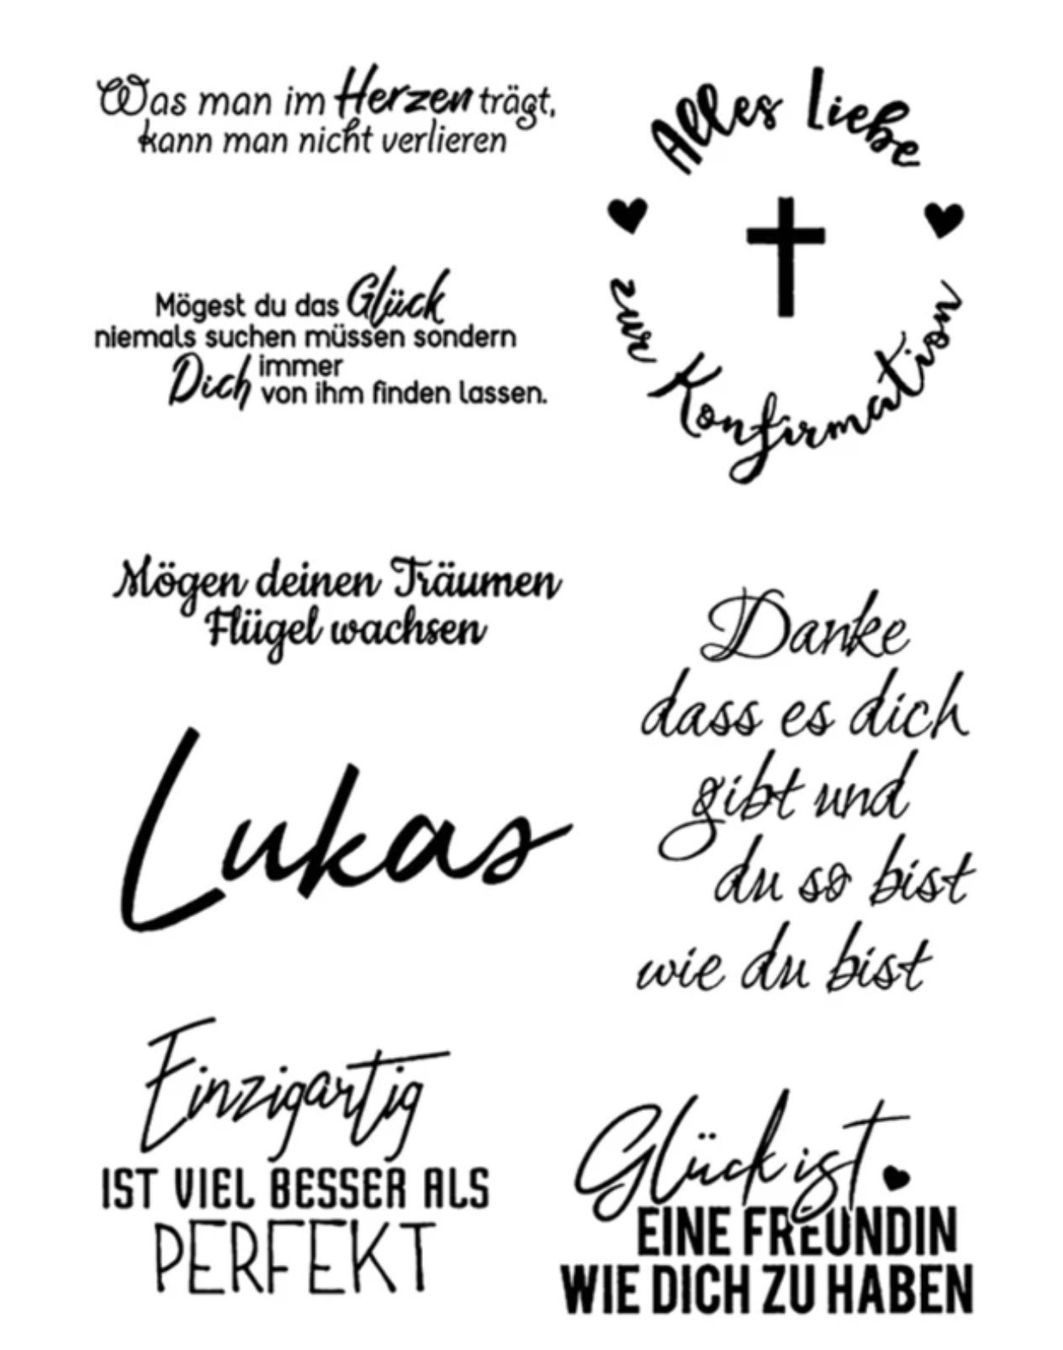 Was man im Herzen trägt,
kann man nicht verlieren
Alles Liebe
zur Konfirmation
Mögest du das Glück
niemals suchen müssen sondern
Dich immer
von ihm finden lassen.
Mögen deinen Träumen
Flügel wachsen
Danke
dass es dich
gibt und
du so bist
wie du bist
Lukas
Einzigartig
IST VIEL BESSER ALS
PERFEKT
Glück ist
EINE FREUNDIN
WIE DICH ZU HABEN